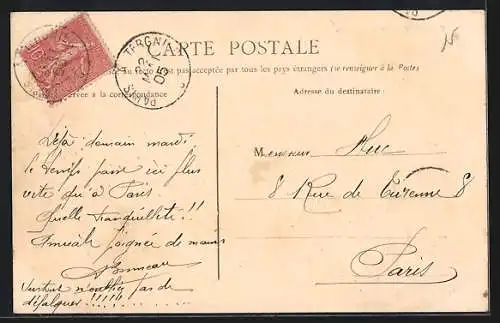 CARTE POSTALE
pas acceptée par tous les pays étrangers (se renseigner à la Poste)
à la correspondance
Adresse du destinataire
TERGNIER
05
10
Déjà demain mardi
le temps passe ici plus
vite qu'à Paris.
Quelle tranquillité !!
Amicale poignée de mains
Surtout n'oubliez pas de
défalquer !!!!!!
Monsieur Huc
8 Rue de Turenne 8
Paris